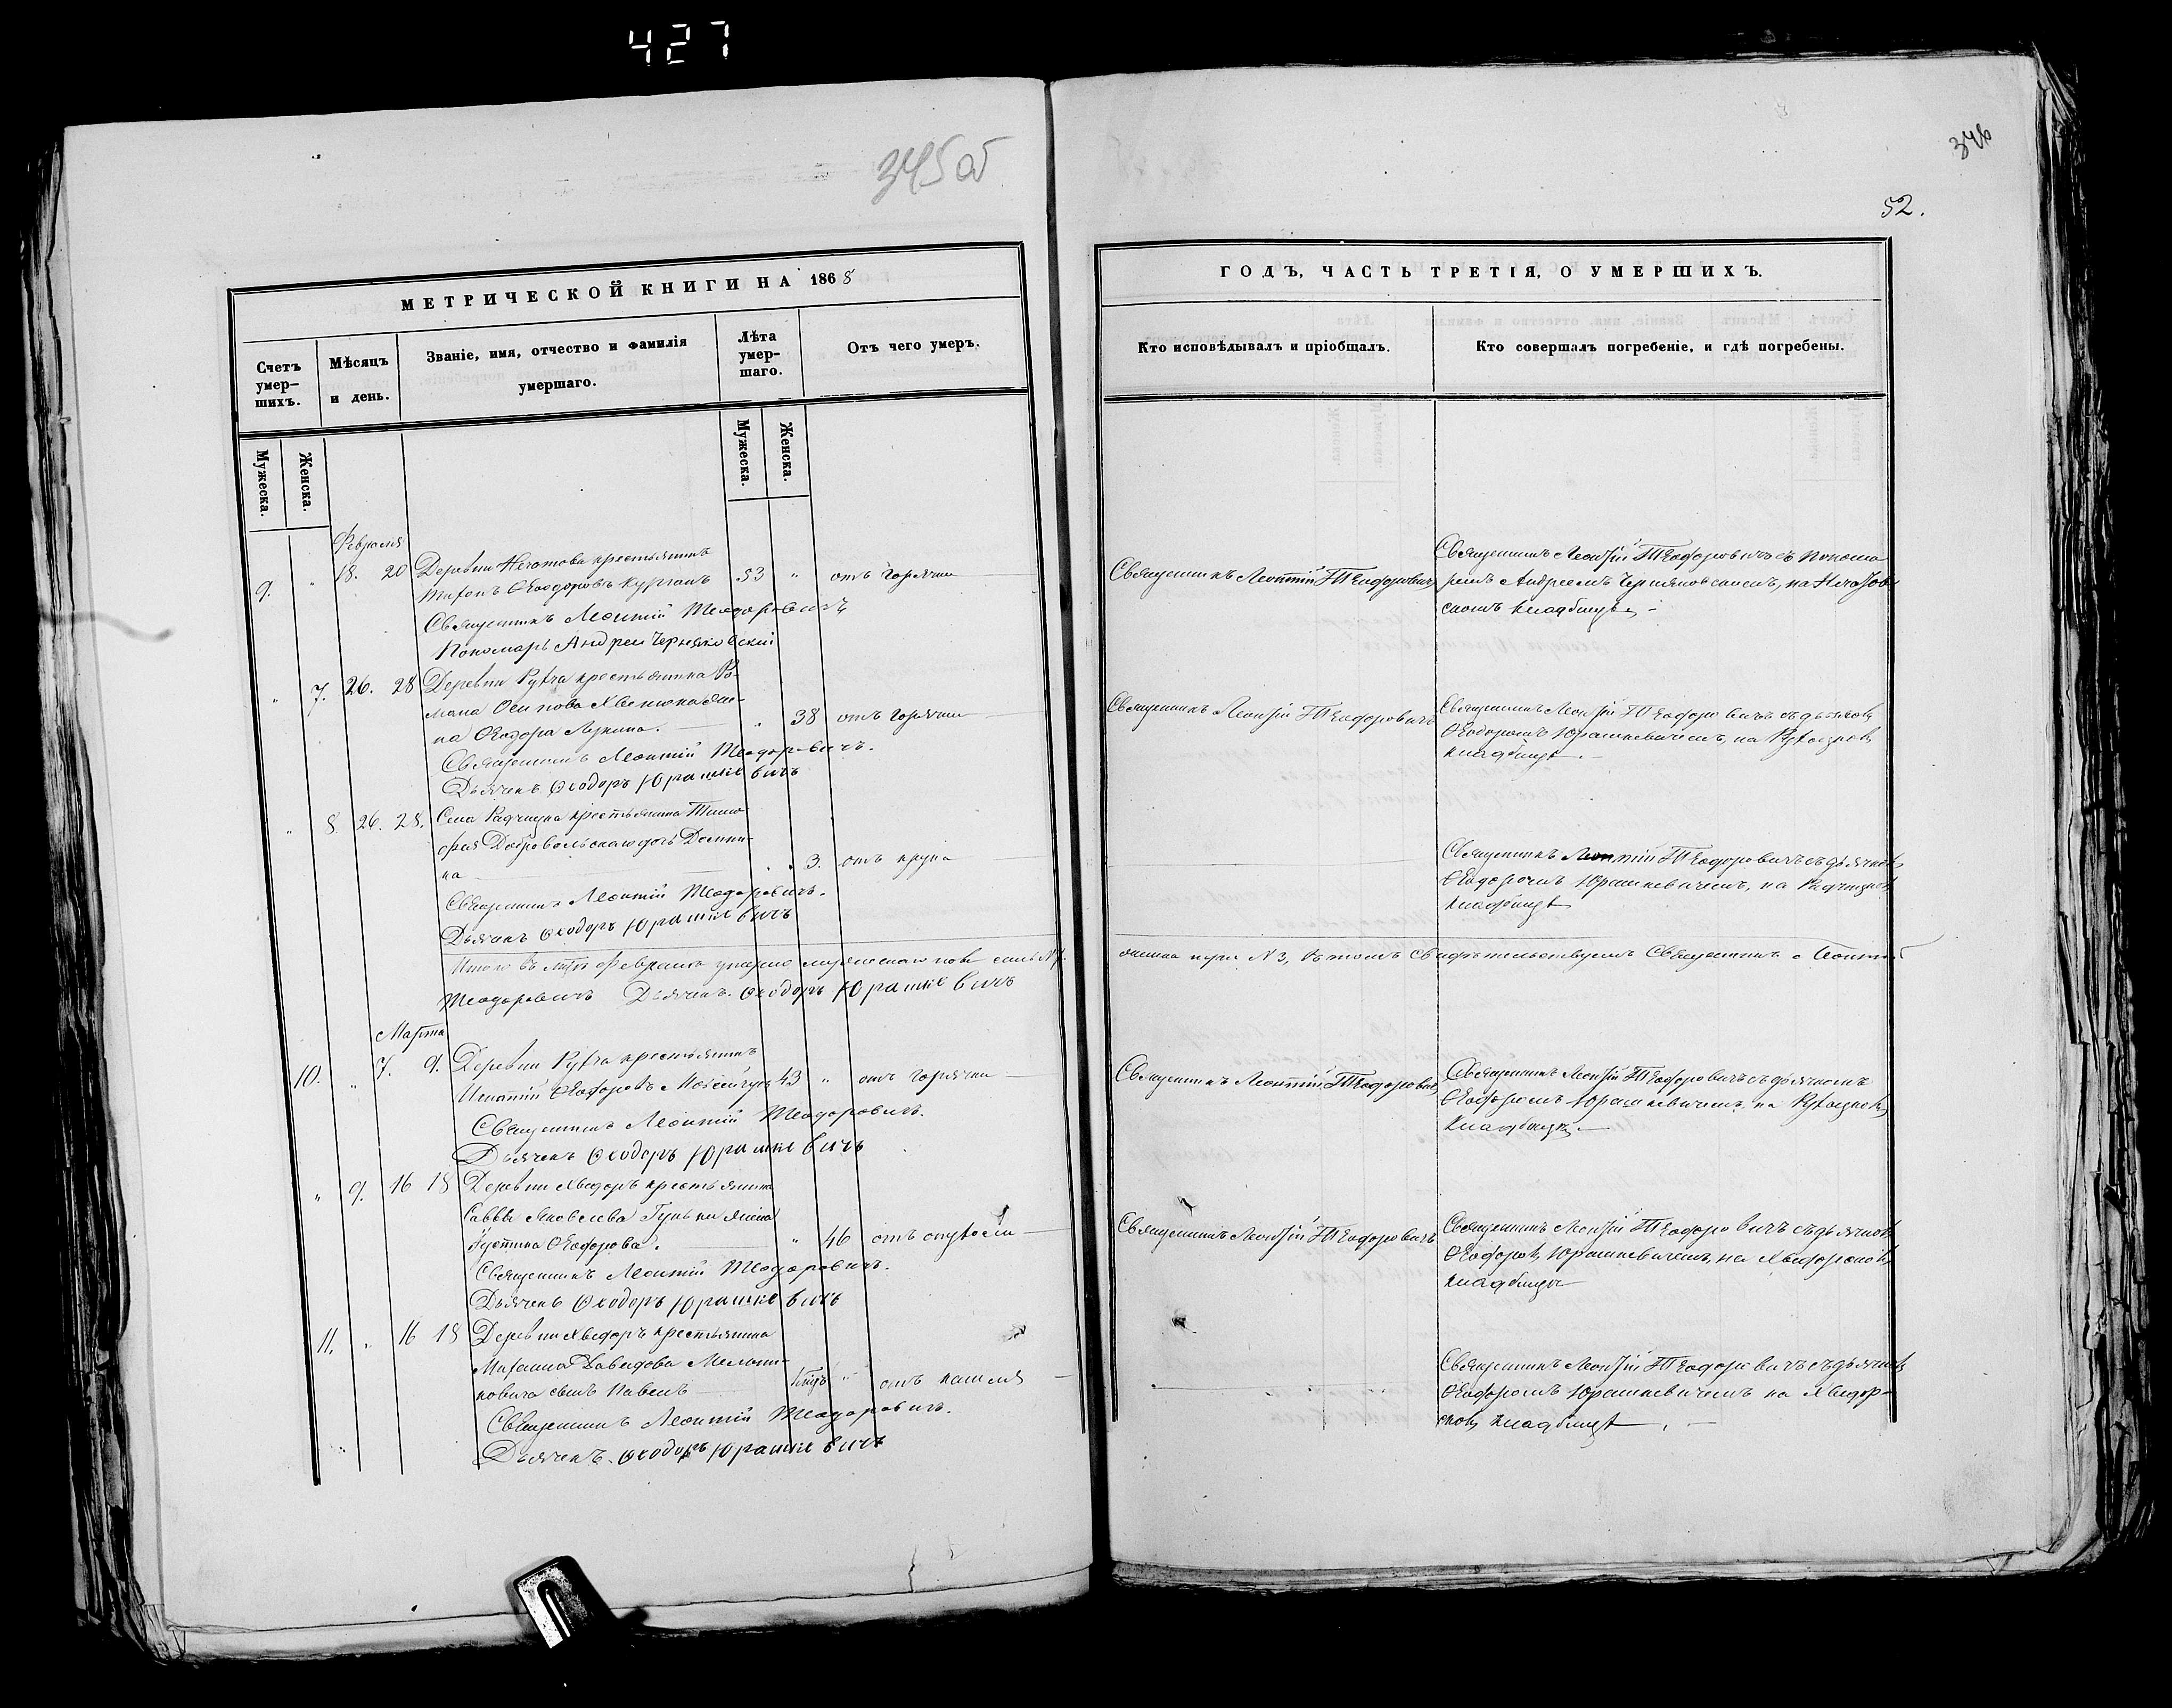 427
345 об
346
52.
МЕТРИЧЕСКОЙ КНИГИ НА 1868
ГОДЪ, ЧАСТЬ ТРЕТІЯ, О УМЕРШИХЪ.
Счетъ умер-
шихъ.
Мѣсяцъ
и день.
Званіе, имя, отчество и фамилія
умершаго.
Лѣта
умер-
шаго.
Отъ чего умеръ.
Кто исповѣдывалъ и пріобщалъ.
Кто совершалъ погребеніе, и гдѣ погребены.
Мужеска.
Женска.
Мужеска.
Женска.
Февраля
9. " 18. 20 Деревни Нечатова крестьянинъ
Ѳеодоровъ Курганъ 53 " отъ горячки
Священникъ Леонтій Теодоровичъ
Пономарь Андрей Черняковскій
Священникъ Леонтій Теодоровичъ
Священникъ Леонтій Теодоровичъ съ понома
ремъ Андреемъ Черняковскимъ, на Нечатов
скомъ кладбищѣ
" 7. 26. 28 Деревни Рубля крестьянина Ро-
мана Осипова же-
на Ѳеодора 38 отъ горячки
Священникъ Леонтій Теодоровичъ.
Дьячекъ Ѳеодоръ Юрашкевичъ
Священникъ Леонтій Теодоровичъ
Священникъ Леонтій Теодоровичъ съ дьячком
Ѳеодоромъ Юрашкевичемъ, на
кладбищѣ.
" 8. 26. 28. Села Радчицка крестьянина Тимо
фея Добровольскаго дочь Домни-
ка " 3. отъ крупа
Священникъ Леонтій Теодоровичъ.
Дьячекъ Ѳеодоръ Юрашкевичъ
Священникъ Леонтій Теодоровичъ съ дьячком
Ѳеодоромъ Юрашкевичемъ, на Радчицком
кладбищѣ
Итого въ февралѣ умерло мужескаго пола
женска пола №3, въ томъ свидѣтельствуемъ Священникъ Леонтій
Теодоровичъ Дьячекъ Ѳеодоръ Юрашкевичъ
Марта
10. " 7. 9. Деревни крестьянинъ
Игнатій Ѳеодоровъ 43 " отъ горячки
Священникъ Леонтій Теодоровичъ.
Дьячекъ Ѳеодоръ Юрашкевичъ
Священникъ Леонтій Теодоровичъ
Священникъ Леонтій Теодоровичъ съ дьячкомъ
Ѳеодоромъ Юрашкевичемъ на
кладбищѣ.
" 9. 16 18 Деревни Хведоръ крестьянина
Саввы Яковлева жена
Іустина Ѳеодорова. " 46 отъ опухоли
Священникъ Леонтій Теодоровичъ.
Дьячекъ Ѳеодоръ Юрашкевичъ
Священникъ Леонтій Теодоровичъ
Священникъ Леонтій Теодоровичъ съ дьячком
Ѳеодоромъ Юрашкевичемъ, на Хведорском
кладбищѣ
11. " 16 18 Деревни Хведоръ крестьянина
Михаила Давидова Мельни-
ковича сынъ Павелъ " отъ кашля
Священникъ Леонтій Теодоровичъ.
Дьячекъ Ѳеодоръ Юрашкевичъ
Священникъ Леонтій Теодоровичъ съ дьячком
Ѳеодоромъ Юрашкевичемъ на Хведор-
ском кладбищѣ.